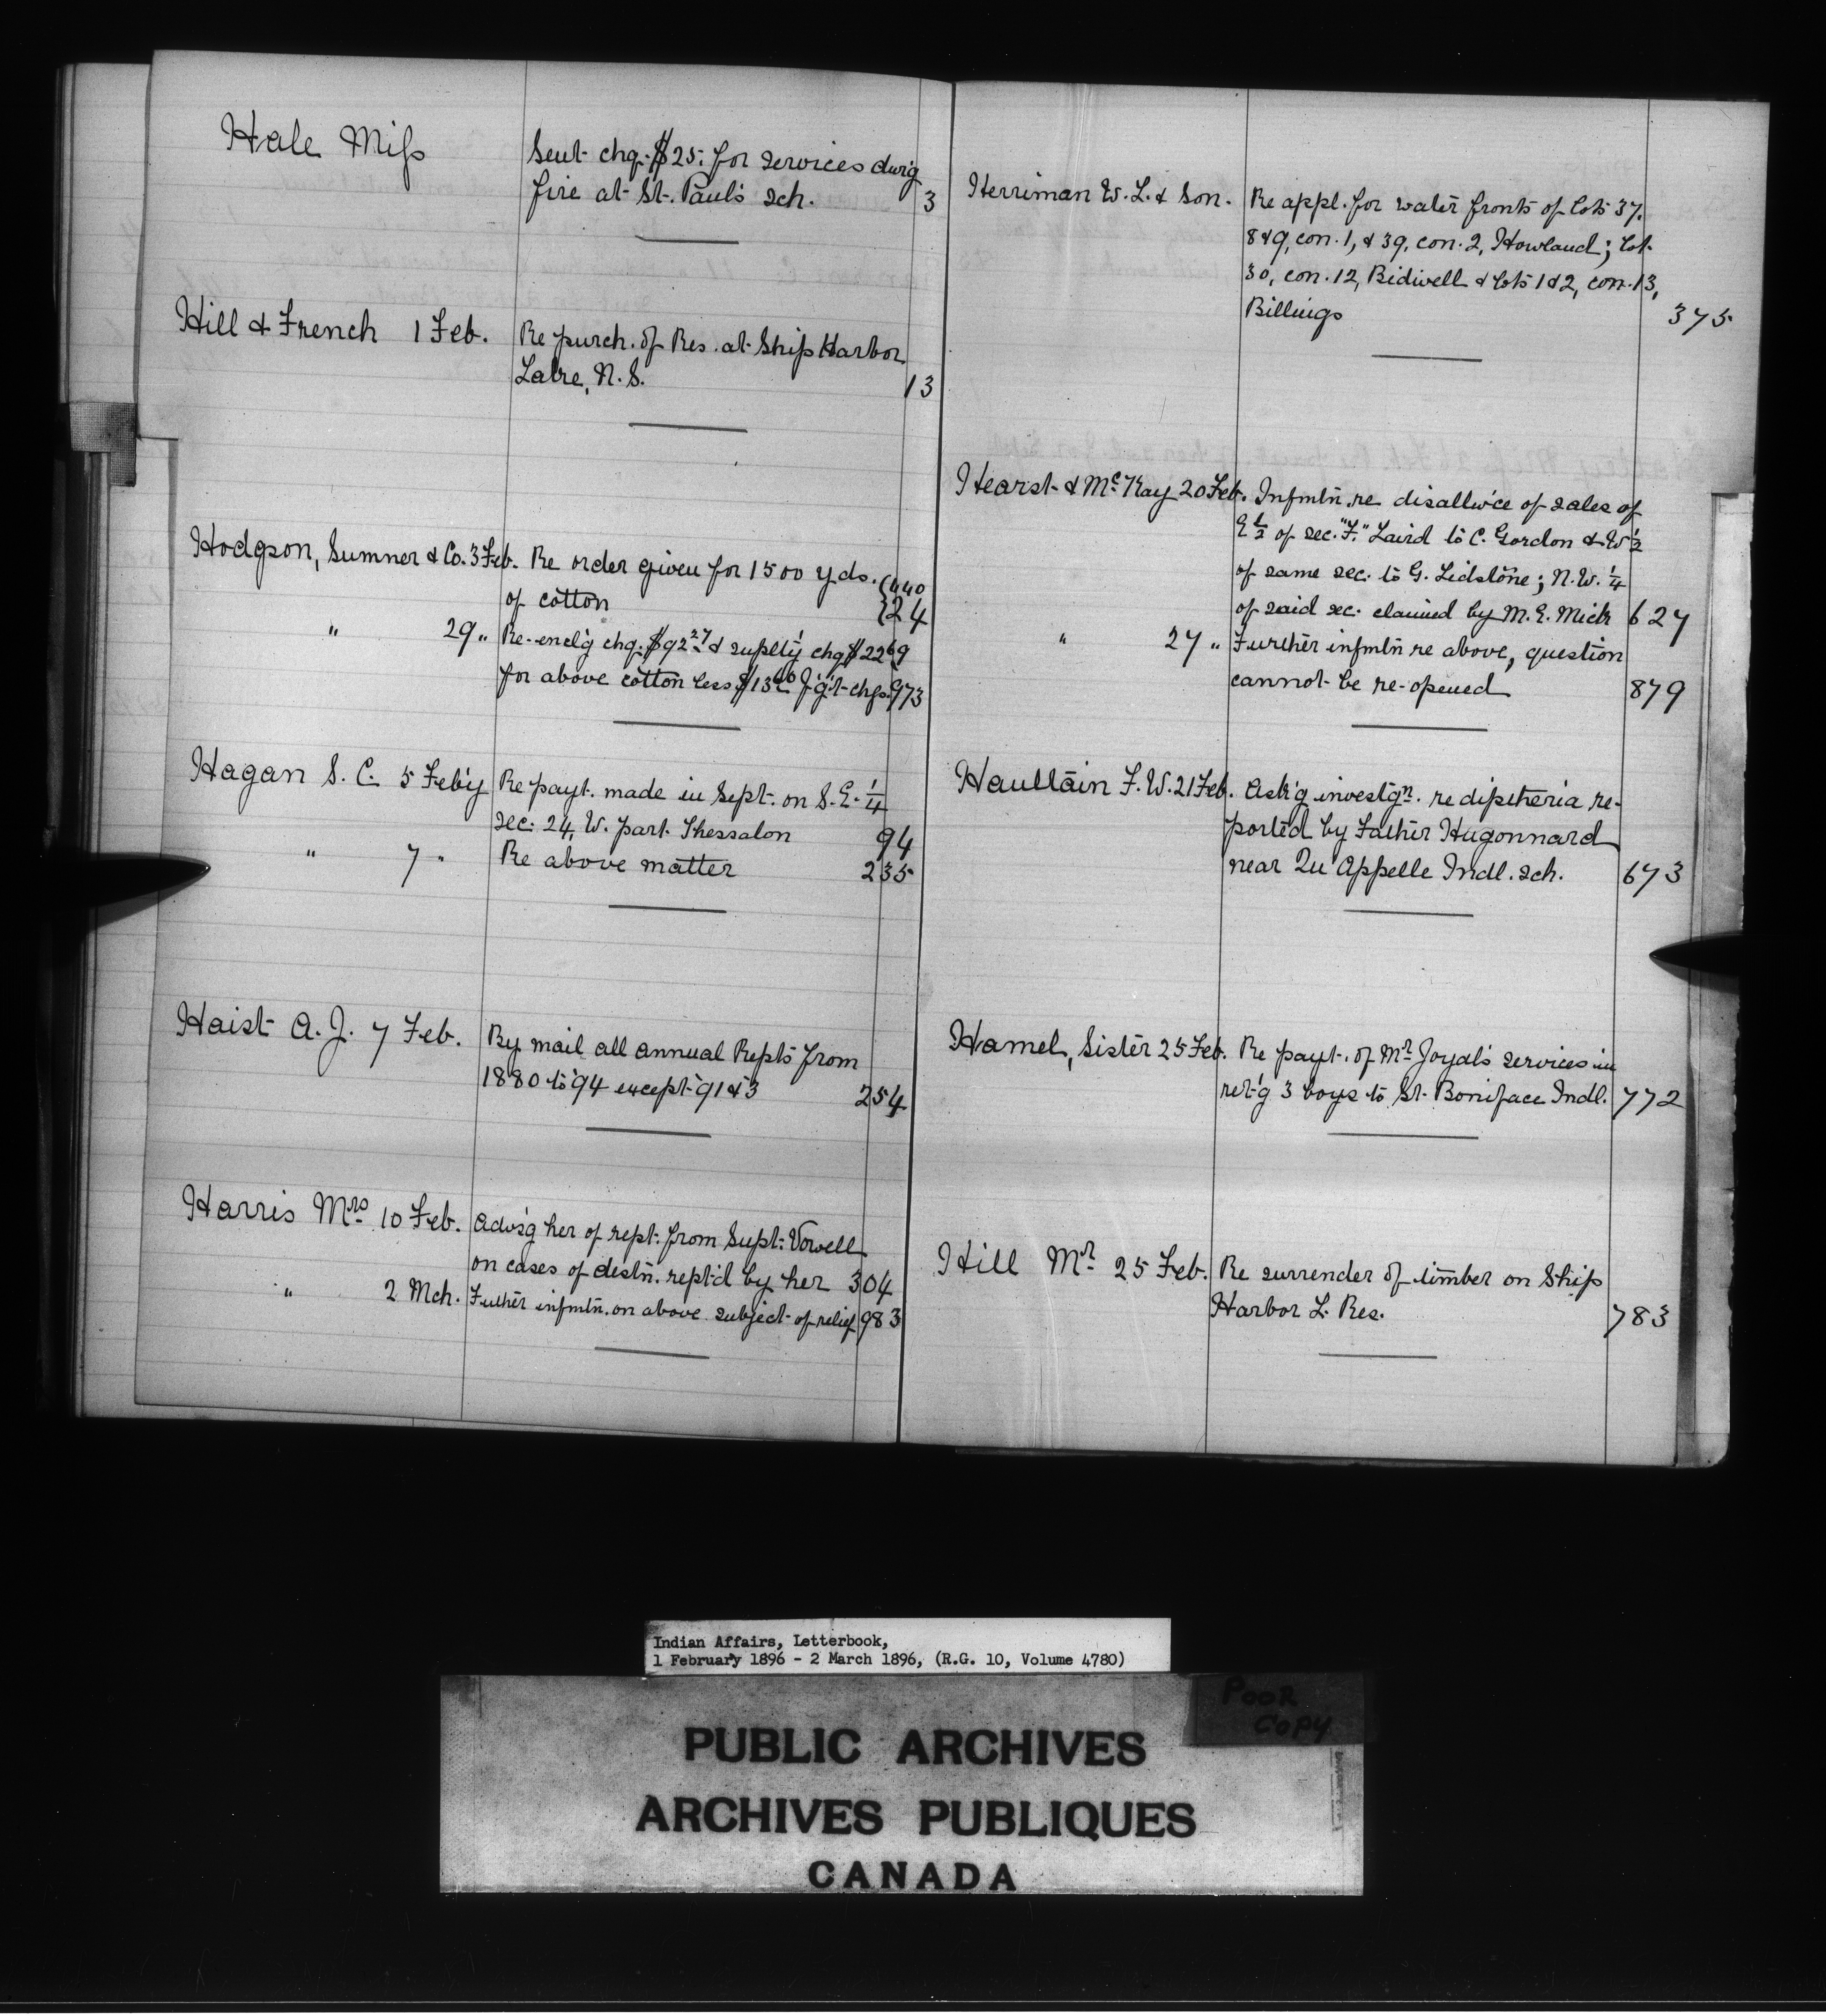 Hale Miss
Sent chq. $25. for services dur'g
fire at St. Paul's sch. 3
Hill & French 1 Feb. Re purch. of Res. at Ship Harbor
Lake, N.S. 13
Hodgson, Sumner & Co. 3 Feb. Re order given for 1500 yds. {440
of cotton {24
" 29 " Re-encl'g chq. $92 27 & supplt'y chq $22 69
for above cotton less $13 46 f'g't chgs. 973
Hagan S. C. 5 Feb'y Re payt. made in Sept. on S.E. 1/4
sec. 24, W. part Thessalon 94
" 7 " Re above matter 235
Haist A. J. 7 Feb. By mail all annual Repts from
1880 to '94 except '91 & 3 254
Harris Mrs 10 Feb. Advs'g her of rept. from Supt. Vowell
on cases of destn. rept'd by her 304
" 2 Mch. Futher infmtn. on above subject of relief 983
Herriman W. L. & Son. Re appl. for water fronts of lots 37,
8 & 9, con. 1, & 39, con. 2, Howland; lot
30, con. 12, Bidwell & lots 1 & 2, con. 13,
Billings 375
Hearst & McKay 20 Feb. Infmtn. re disallw'ce of sales of
E 1/2 of sec. "F." Laird to C. Gordon & W 1/2
of same sec. to G. Lidstone; N.W. 1/4
of said sec. claimed by M. E. Mick 627
" 27 " Further infmtn re above, question
cannot be re-opened 879
Haultain F. W. 21 Feb. Ask'g investgn. re diptheria re-
ported by Father Hugonnard
near Qu'Appelle Indl. sch. 673
Hamel, Sister 25 Feb. Re payt. of Mr Joyal's services in
ret'g 3 boys to St. Boniface Indl. 772
Hill Mr 25 Feb. Re surrender of timber on Ship
Harbor L. Res. 783
Indian Affairs, Letterbook,
1 February 1896 - 2 March 1896, (R.G. 10, Volume 4780)
POOR
COPY
PUBLIC ARCHIVES
ARCHIVES PUBLIQUES
CANADA